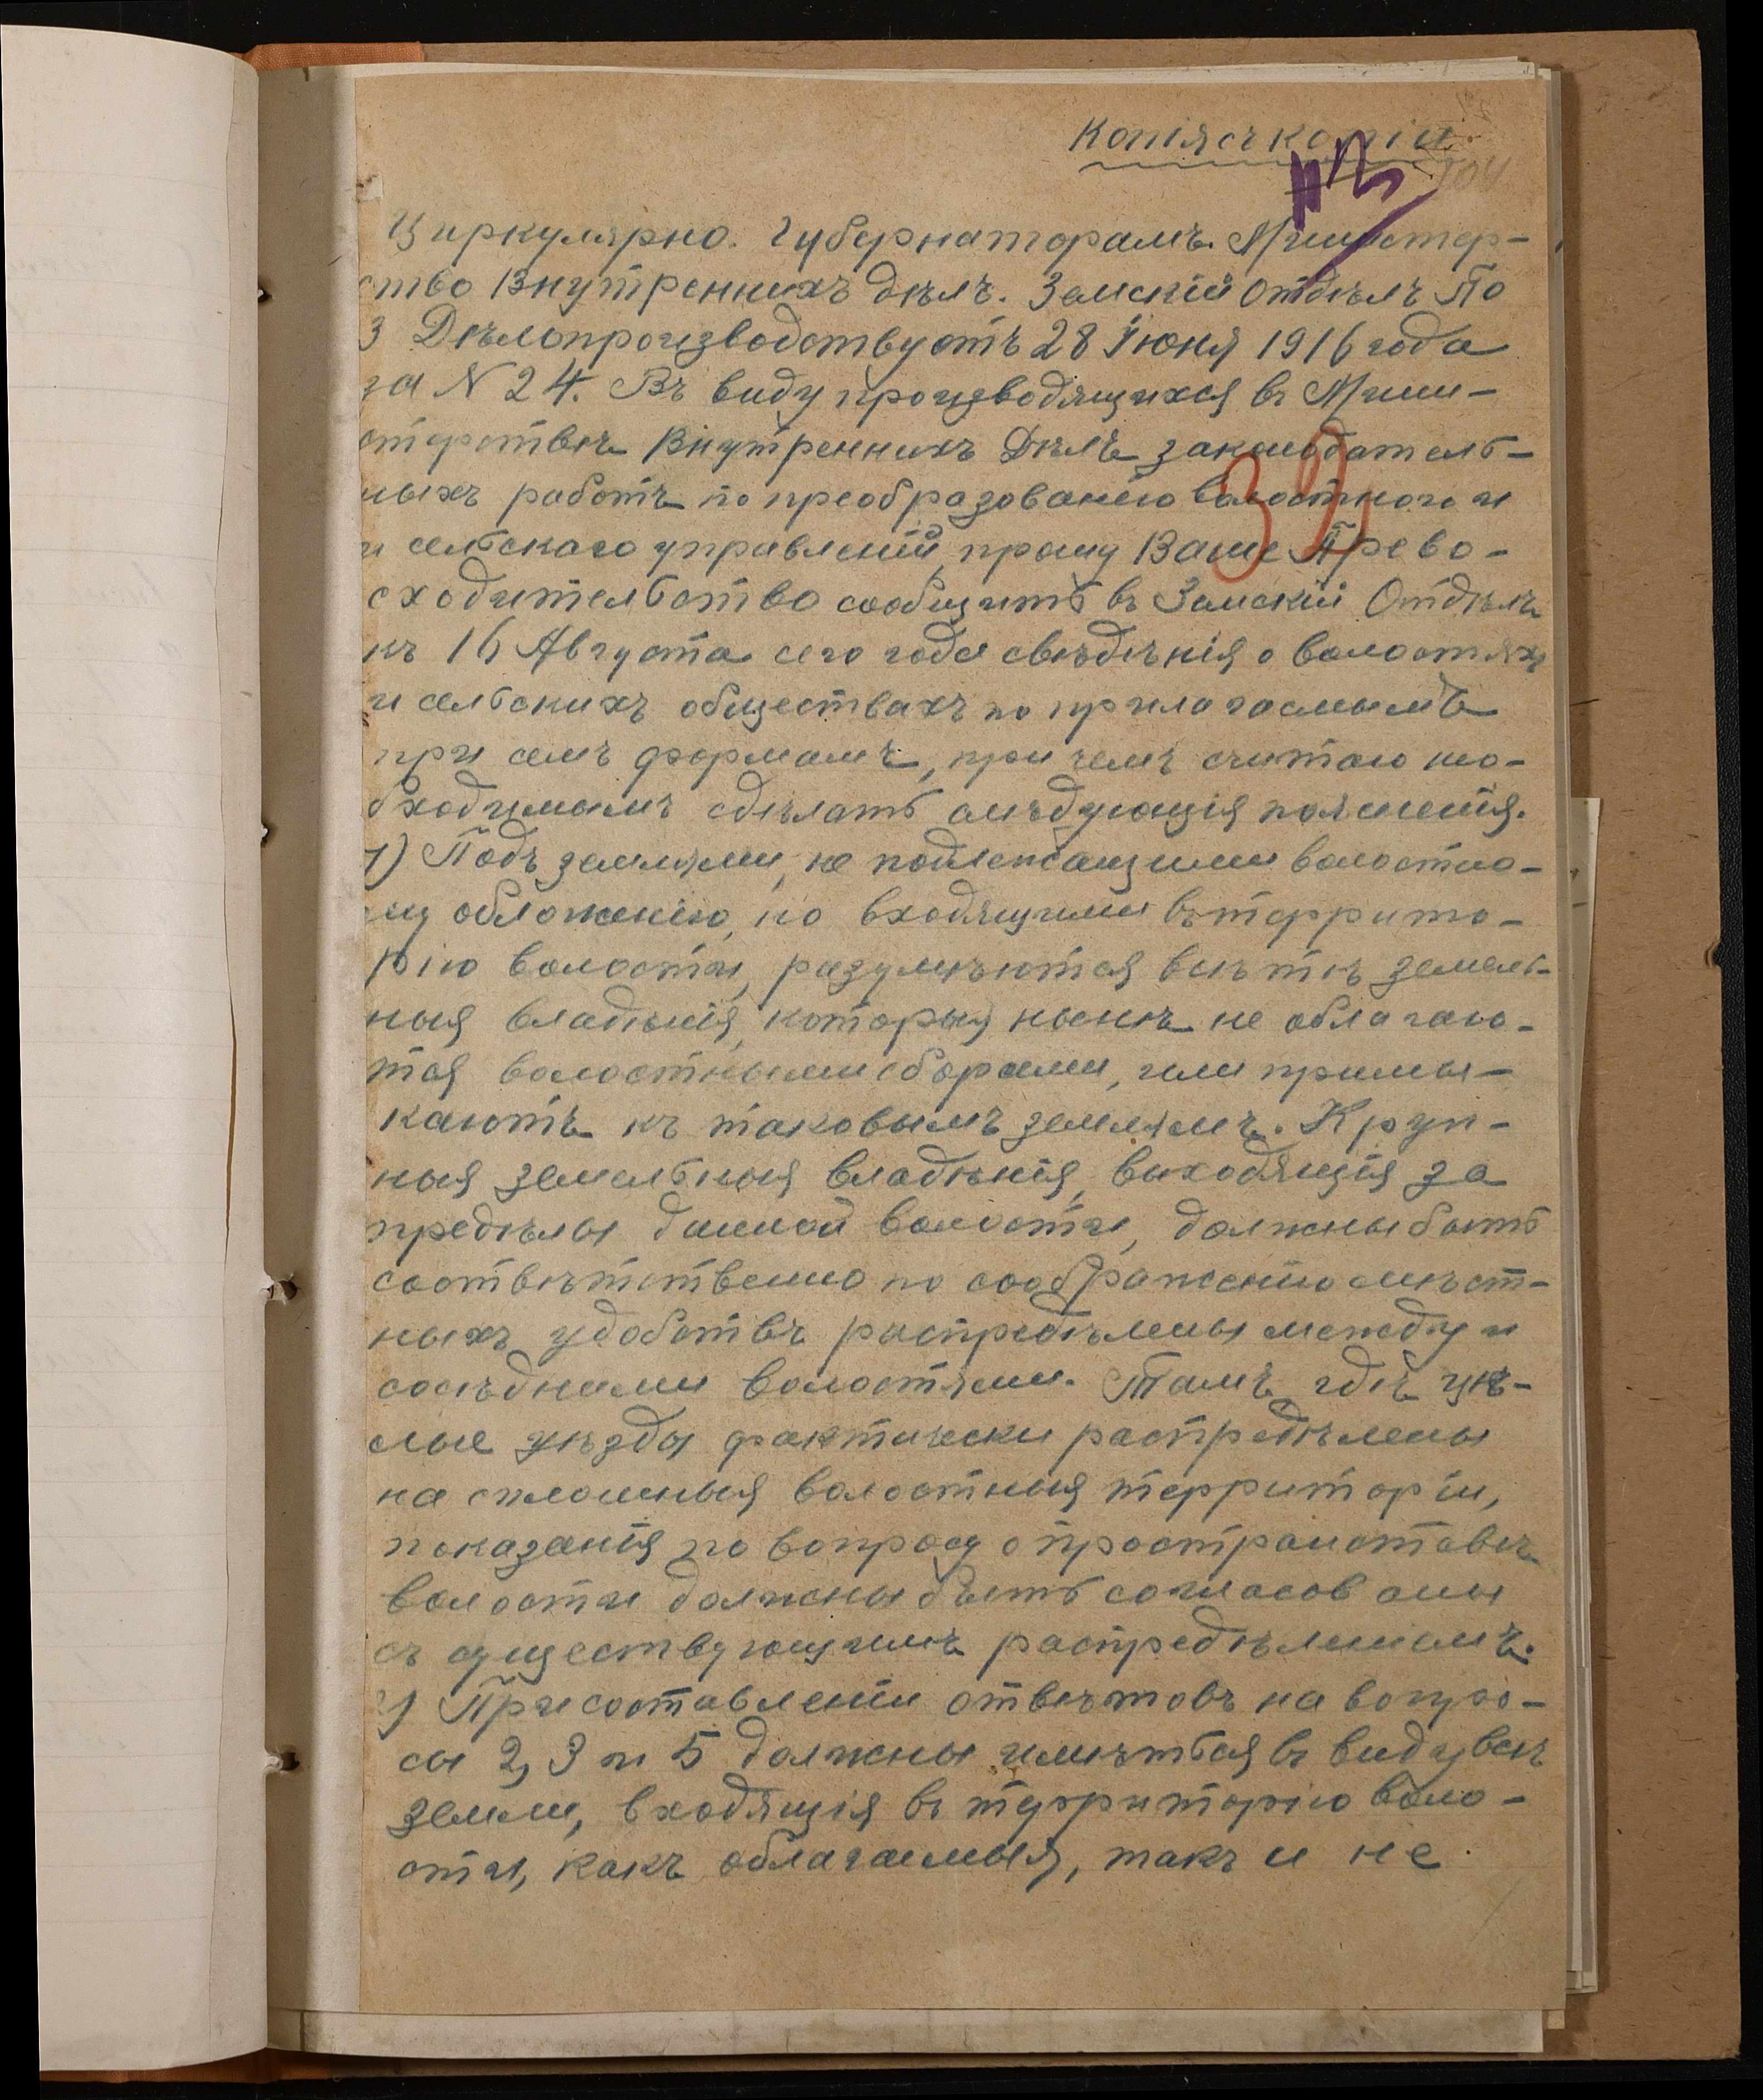 Копія съ копіи.
104
Циркулярно. Губернаторамъ. Министер-
ство Внутреннихъ дѣлъ. Земскій Отдѣлъ По
3 Дѣлопроизводству отъ 28 Іюня 1916 года
за N 24. Въ виду производящихся въ Мини-
стерствѣ Внутреннихъ Дѣлъ законодатель-
ныхъ работъ по преобразованію волостного и
и сельскаго управленій, прошу Ваше Прево-
сходительство сообщить въ Земскій Отдѣлъ
къ 16 Августа сего года свѣдѣнія о волостяхъ
и сельскихъ обществахъ по прилагаемымъ
при семъ формамъ, при чемъ считаю нео-
бходимымъ сдѣлать слѣдующія поясненія.
1) Подъ землями, не подлежащими волостно-
му обложенію, но входящими въ террито-
рію волости, разумѣются всѣ тѣ земель-
ныя владѣнія, которыя нынѣ не облагаю-
тся волостными сборами, или примы-
каютъ къ таковымъ землямъ. Круп-
ныя земельныя владѣнія, выходящія за
предѣлы данной волости, должны быть
соотвѣтственно по соображенію мѣст-
ныхъ удобствъ распредѣлены между и
сосѣдними волостями. Тамъ, гдѣ цѣ-
лые уѣзды фактически распредѣлены
на сплошныя волостныя территоріи,
показанія по вопросу о пространствѣ
волости должны быть согласованы
съ существующимъ распредѣленіемъ.
2) При составленіи отвѣтовъ на вопро-
сы 2, 3 и 5 должны имѣться въ виду всѣ
земли, входящія въ территорію воло-
сти, какъ облагаемыя, такъ и не
32